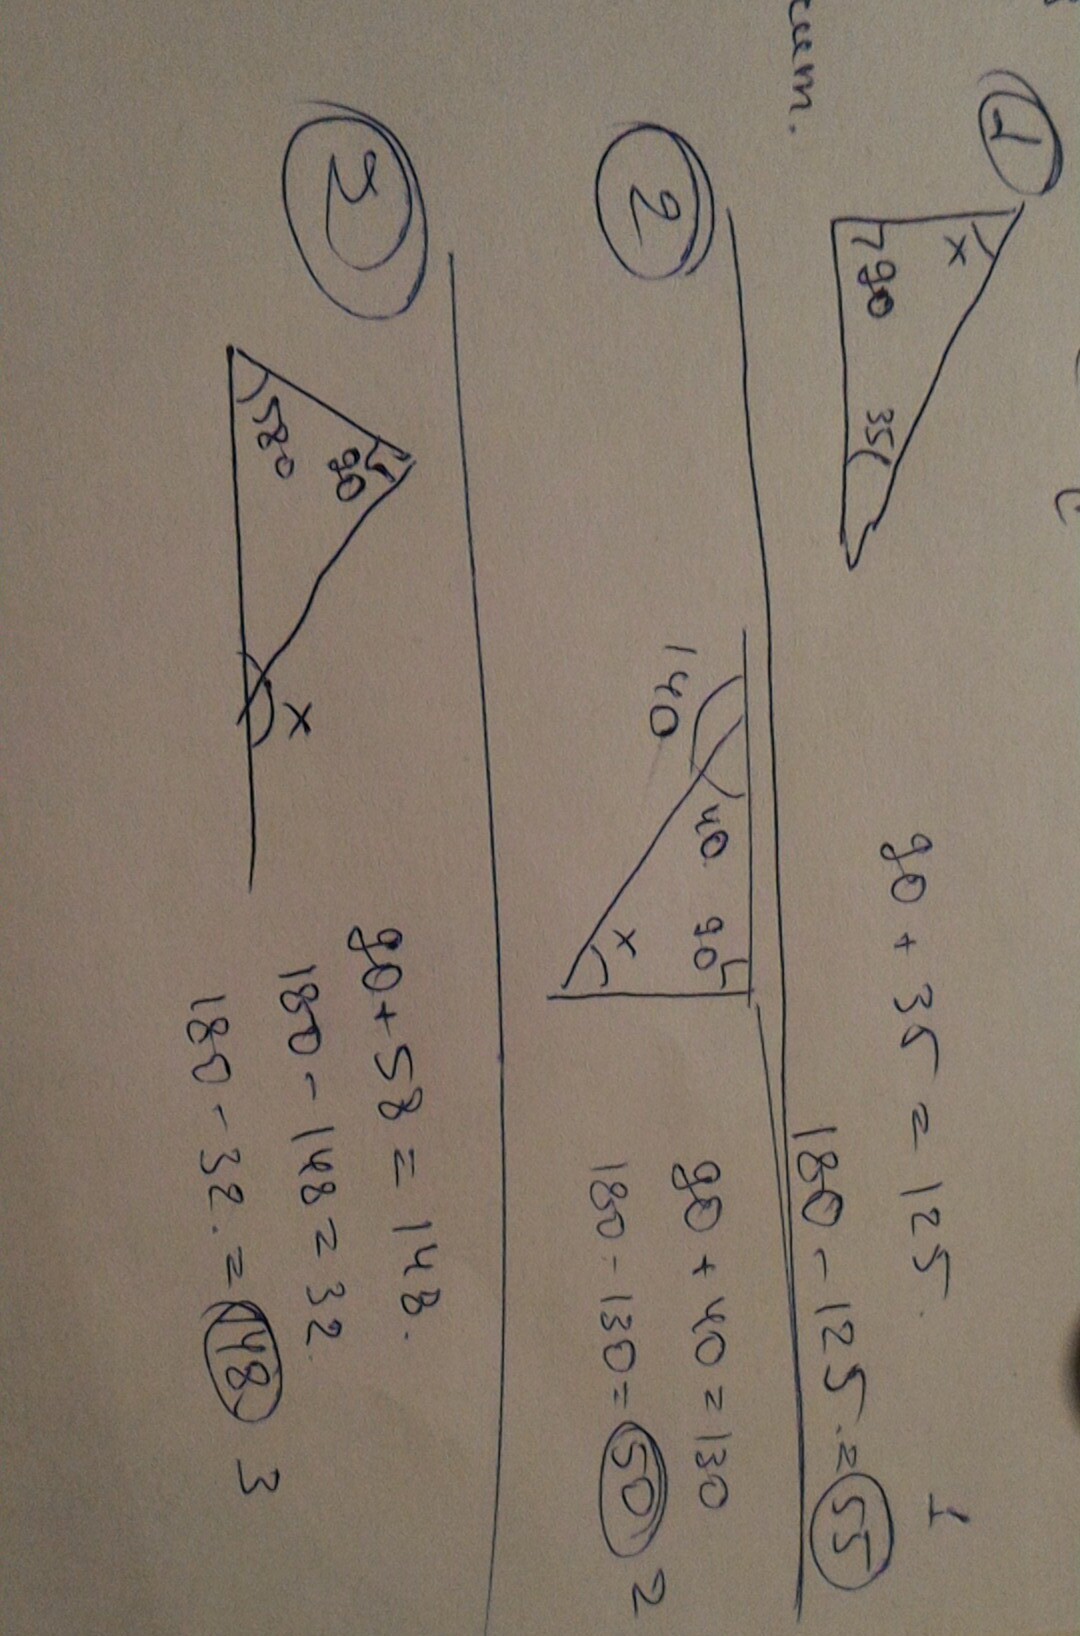 сит.
1
x
90
35
90 + 35 = 125.
180 - 125. = 55
1
2
140
40
90
x
90 + 40 = 130
180 - 130 = 50
2
3
580
90
x
90 + 58 = 148.
180 - 148 = 32.
180 - 32. = 148
3